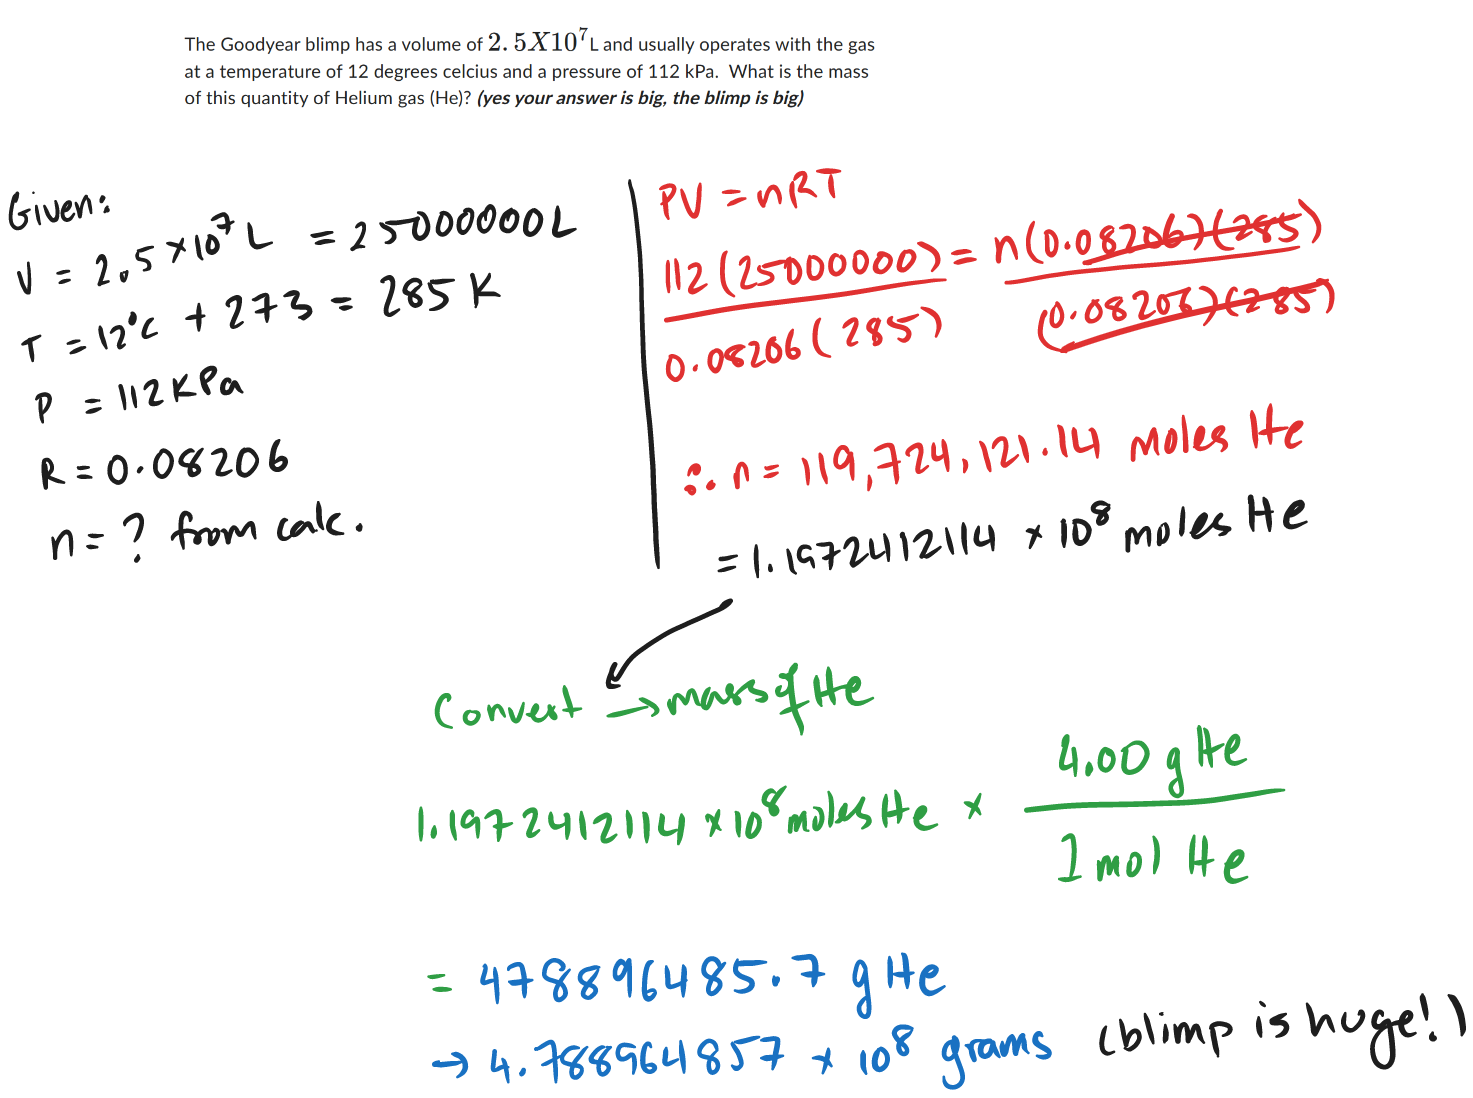 The Goodyear blimp has a volume of 2.5X10⁷L and usually operates with the gas
at a temperature of 12 degrees celcius and a pressure of 112 kPa. What is the mass
of this quantity of Helium gas (He)? (yes your answer is big, the blimp is big)
Given:
V = 2.5 × 10⁷ L = 25000000L
T = 12°C + 273 = 285 K
P = 112KPa
R = 0.08206
n = ? from calc.
PV = nRT
112 (25000000) = n(0.08206)(285)
0.08206 (285) (0.08206)(285)
∴ n = 119,724,121.14 moles He
= 1.1972412114 × 10⁸ moles He
Convert → mass of He
1.1972412114 × 10⁸ moles He × 4.00 g He
1 mol He
= 478896485.7 g He
→ 4.788964857 × 10⁸ grams (blimp is huge!)